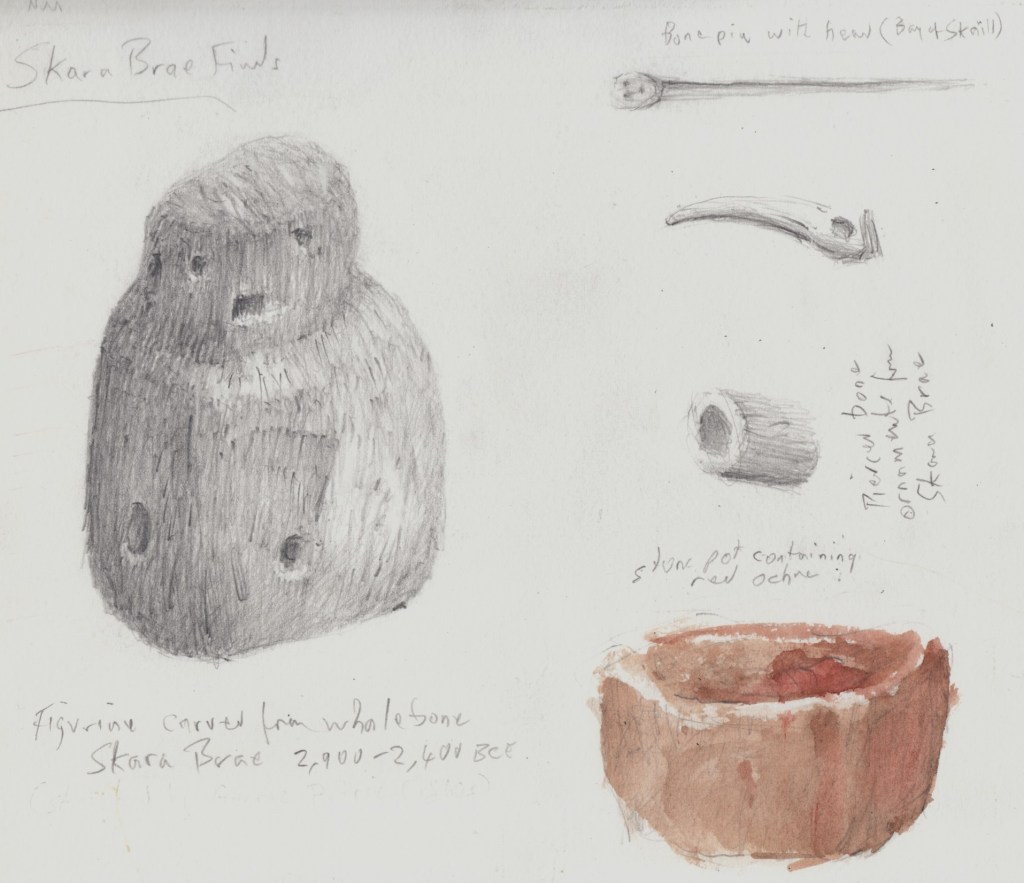 Skara Brae Finds
Bone pin with head (Bay of Skaill)
Pierced bone
ornaments from
Skara Brae
stone pot containing
red ochre
Figurine carved from whalebone
Skara Brae 2,900-2,400 BCE